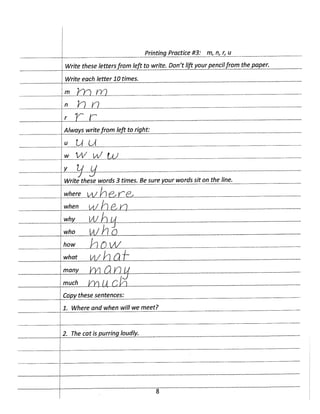 Printing Practice #3: m, n, r, u
Write these letters from left to write. Don't lift your pencil from the paper.
Write each letter 10 times.
m m m
n n n
r r r
Always write from left to right:
u u u
w w w w
y y y
Write these words 3 times. Be sure your words sit on the line.
where where
when when
why why
who who
how how
what what
many many
much much
Copy these sentences:
1. Where and when will we meet?
2. The cat is purring loudly.
8